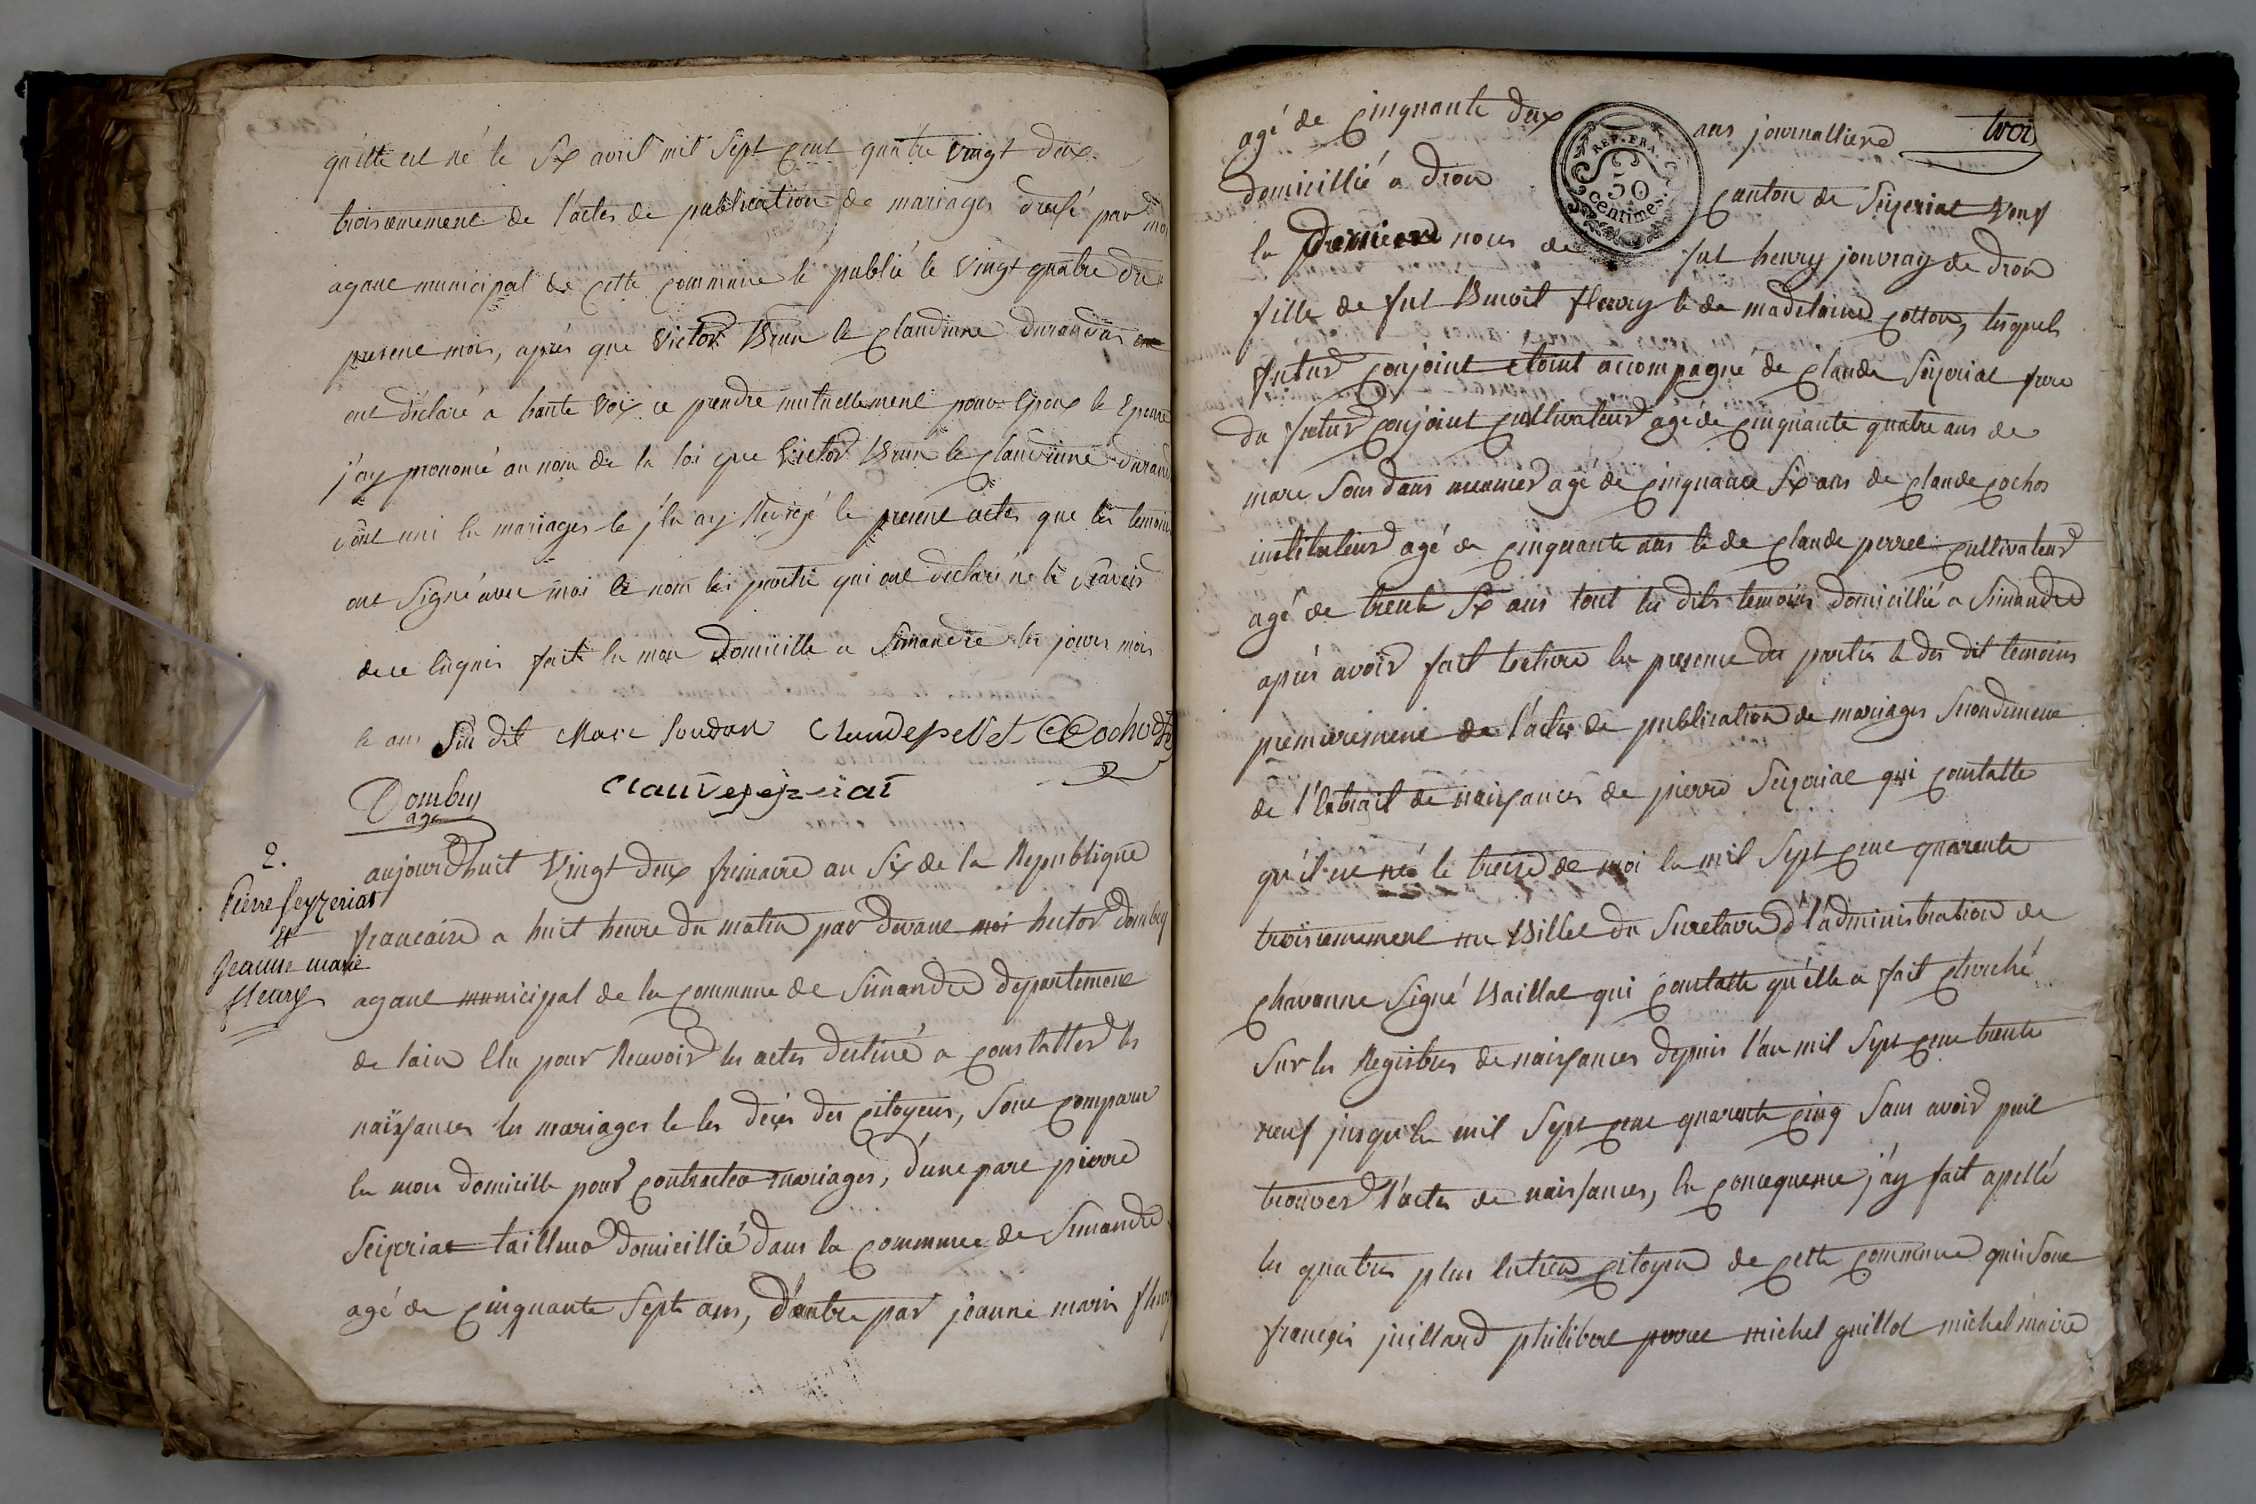 qu'elle est né le Six avril mil Sept cent quatre vingt deux
troisiemement de l'actes de publication de mariages dressé par moi
agant municipal de cette commune et publié le vingt quatre du
present mois, après que Victor Brun et Claudinne Durandas
ont déclaré a haute voix ce prendre mutuellement pour Epoux et Epouse
j'ay prononcé au nom de la loi que Victor Brun et Claudinne Durand
sont uni en mariages et j'en ay Redigé le present actes que les temoins
ont Signé avec moi et nom les partie qui ont declaré ne le Scavoir
de ce Enquis fait en mon Domicille a Simandre les jours mois
et ans Su dit Marc Soudan Claude peret CCochod
Dombey
agt
Claude sejziat
2.
Pierre Seyzeriat
et
Jeanne marie
fleury
aujourd'huit Vingt deux frimaire an Six de la Republique
francaise a huit heure du matin par devant moi hector Dombey
agant municipal de la commune de Simandre departement
de lain Elu pour Recevoir les actes destiné a constatter les
naissances les mariages et les deces des citoyens, Sont comparu
en mon domicille pour contracter mariages, d'une part pierre
Seizeriat tailleur domicillié dans la commune de Simandre
agé de cinquante Sept ans, d'autre par jeanne marie fleury
trois
agé de cinquante deux ans journalliere
domicillié a Dron canton de Seizeriat Veuf
REP. FRA.
50
centimes.
en Derniere noces de fut henry jouvray de Dron
fille de fut Benoit fleury et de madelaine cotton, lesquels
futur conjoint etoint accompagné de Claude Seizeriat frere
du futur conjoint cultivateur agé de cinquante quatre ans de
marc Soudans menuier agé de cinquante Six ans de Claude Cochos
instituteur agé de cinquante ans et de Claude perret cultivateur
agé de trente Six ans tout les dits temoins domicillié a Simandre
après avoir fait lecture en presence des parties et des dit temoins
premierement de l'actes de publication de mariages Secondement
de l'Extrait de naissances de pierre Seizeriat qui constatte
qu'il est né le treize de moi en mil Sept cent quarente
troisiemement un Billet du Secretaire d l'administration de
Chavanne Signé Vaillat qui constatte qu'elle a fait cherché
Sur les Registres de naissances depuis l'an mil Sept cent trente
neuf jusqu'en mil Sept cent quarente cinq Sans avoir puit
trouver l'actes de naissances, En consequence j'ay fait apellé
les quatres plus Entien citoyen de cette commune qui Sont
françois juillard philibert perret michel guillot michel moire